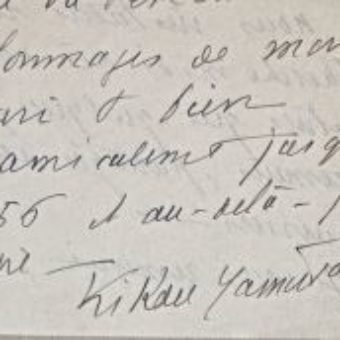 hommages de mon
mari & bien
amicalement jusq
56 et au-delà -
Kikou Yamata